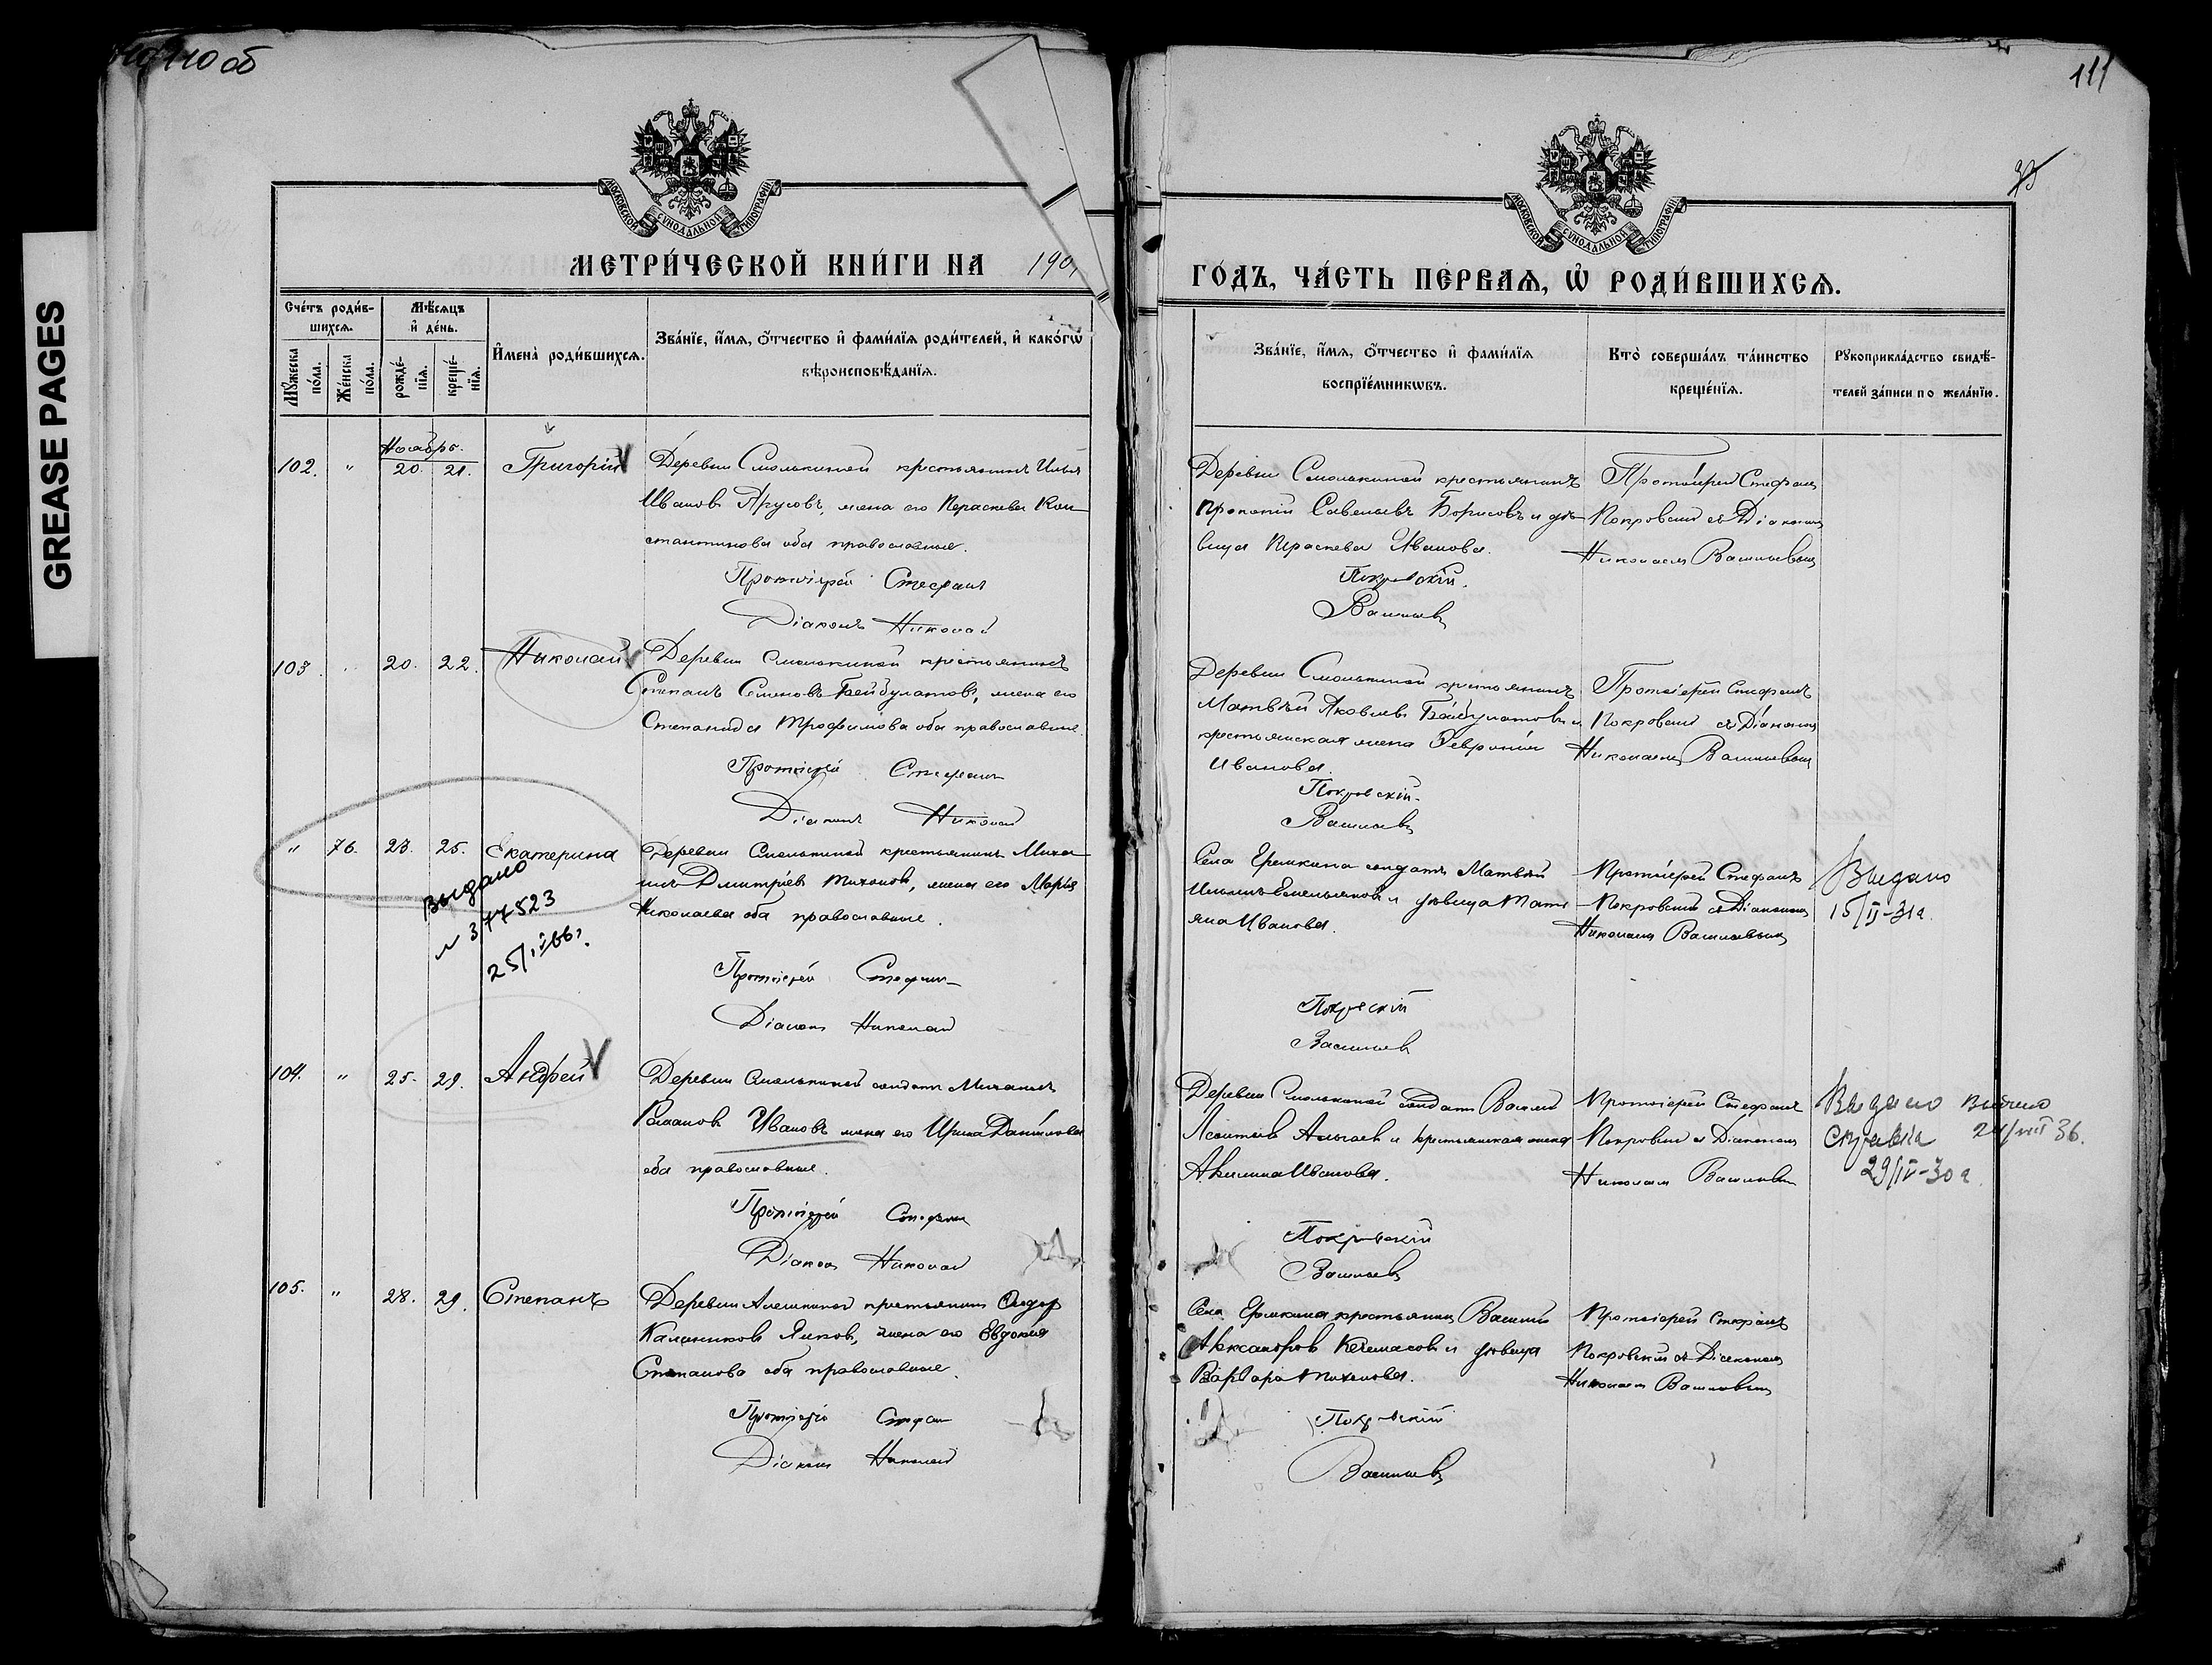 110 об
111
GREASE PAGES
МОСКОВСКОЙ СѴНОДАЛЬНОЙ ТИПОГРАФІИ
МОСКОВСКОЙ СѴНОДАЛЬНОЙ ТИПОГРАФІИ
МЕТРИ́ЧЕСКОЙ КНИ́ГИ НА 190
ГО́ДЪ, ЧА́СТЬ ПЕ́РВАѦ, Ѡ҆ РОДИ́ВШИХСѦ.
Сче́тъ роди́в-
шихсѧ.
Мѣ́сѧцъ
и҆ де́нь.
Мꙋ́жеска по́ла.
Же́нска по́ла.
рожде́-нїѧ.
креще́-нїѧ.
И҆мена̀ роди́вшихсѧ.
Зва́нїе, и҆́мѧ, ѻ҆́тчество и҆ фами́лїѧ роди́телей, и҆ како́гѡ
вѣроисповѣ́данїѧ.
Зва́нїе, и҆́мѧ, ѻ҆́тчество и҆ фами́лїѧ
воспрїе́мникѡвъ.
Кто̀ соверша́лъ та́инство
креще́нїѧ.
Рꙋкоприкла́дство свидѣ́-
телей за́писи по жела́нїю.
Ноябрь.
102. " 20. 21. Григорій
Деревни Смолькиной крестьянинъ Илья
Ивановъ Ярусовъ, жена его Параскева Кон-
стантинова оба православные.
Протоіерей Стефанъ
Діаконъ Николай
Деревни Смолькиной крестьянинъ
Прокопій Савельевъ Борисовъ и дѣ-
вица Параскева Иванова.
Покровскій.
Васильевъ
Протоіерей Стефанъ
Покровскій съ Діакономъ
Николаемъ Васильевымъ
103. " 20. 22. Николай
Деревни Смолькиной крестьянинъ
Степанъ Семеновъ Байбулатовъ, жена его
Степанида Трофимова оба православные.
Протоіерей Стефанъ
Діаконъ Николай
Деревни Смолькиной крестьянинъ
Матвѣй Яковлевъ Байбулатовъ и
крестьянская жена Февронія
Иванова.
Покровскій.
Васильевъ
Протоіерей Стефанъ
Покровскій съ Діакономъ
Николаемъ Васильевымъ
" 76. 23. 25. Екатерина
выдано
№ 377523
Деревни Смолькиной крестьянинъ Миха-
илъ Дмитріевъ Тихоновъ, жена его Марія
Николаева оба православные.
Протоіерей Стефанъ
Діаконъ Николай
Села Ермкина солдатъ Матвѣй
Ильинъ Емельяновъ и дѣвица Тать-
яна Иванова.
Покровскій
Васильевъ
Протоіерей Стефанъ
Покровскій съ Діакономъ
Николаемъ Васильевымъ
Выдано
15/II-31г.
104. " 25. 29. Андрей
Деревни Смолькиной солдатъ Михаилъ
Романовъ Ивановъ жена его Ирина Данилова
оба православные.
Протоіерей Стефанъ
Діаконъ Николай
Деревни Смолькиной солдатъ Василій
Леонтьевъ и крестьянская жена
Акилина Иванова.
Покровскій
Васильевъ
Протоіерей Стефанъ
Покровскій съ Діакономъ
Николаемъ Васильевымъ
Выдано
справка
29/IV-30г.
105. " 28. 29. Степанъ
Деревни Алешкиной крестьянинъ Ѳедоръ
Калинниковъ Яиковъ, жена его Евдокія
Степанова оба православные.
Протоіерей Стефанъ
Діаконъ Николай
Села Ермкина крестьянинъ Василій
Александровъ и дѣвица
Варвара Тихонова.
Покровскій
Васильевъ
Протоіерей Стефанъ
Покровскій съ Діакономъ
Николаемъ Васильевымъ